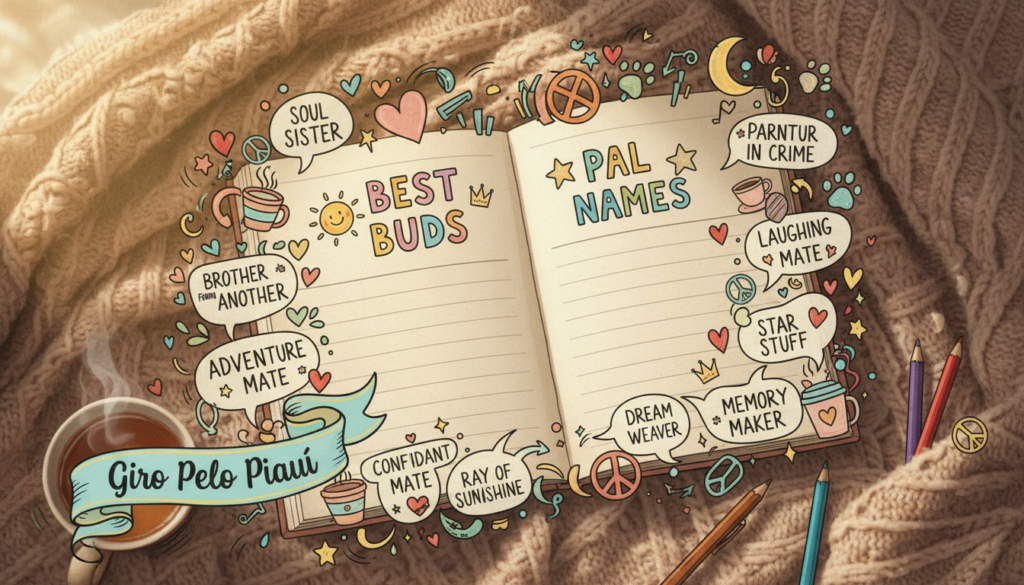 SOUL
SISTER
BEST
BUDS
BROTHER
FROM ANOTHER
ADVENTURE
MATE
Giro Pelo Piauí
CONFIDANT
MATE
RAY OF
SUNISHINE
PAL
NAMES
PARNTUR
IN CRIME
LAUGHING
MATE
STAR
STUFF
DREAM
WEAVER
MEMORY
MAKER